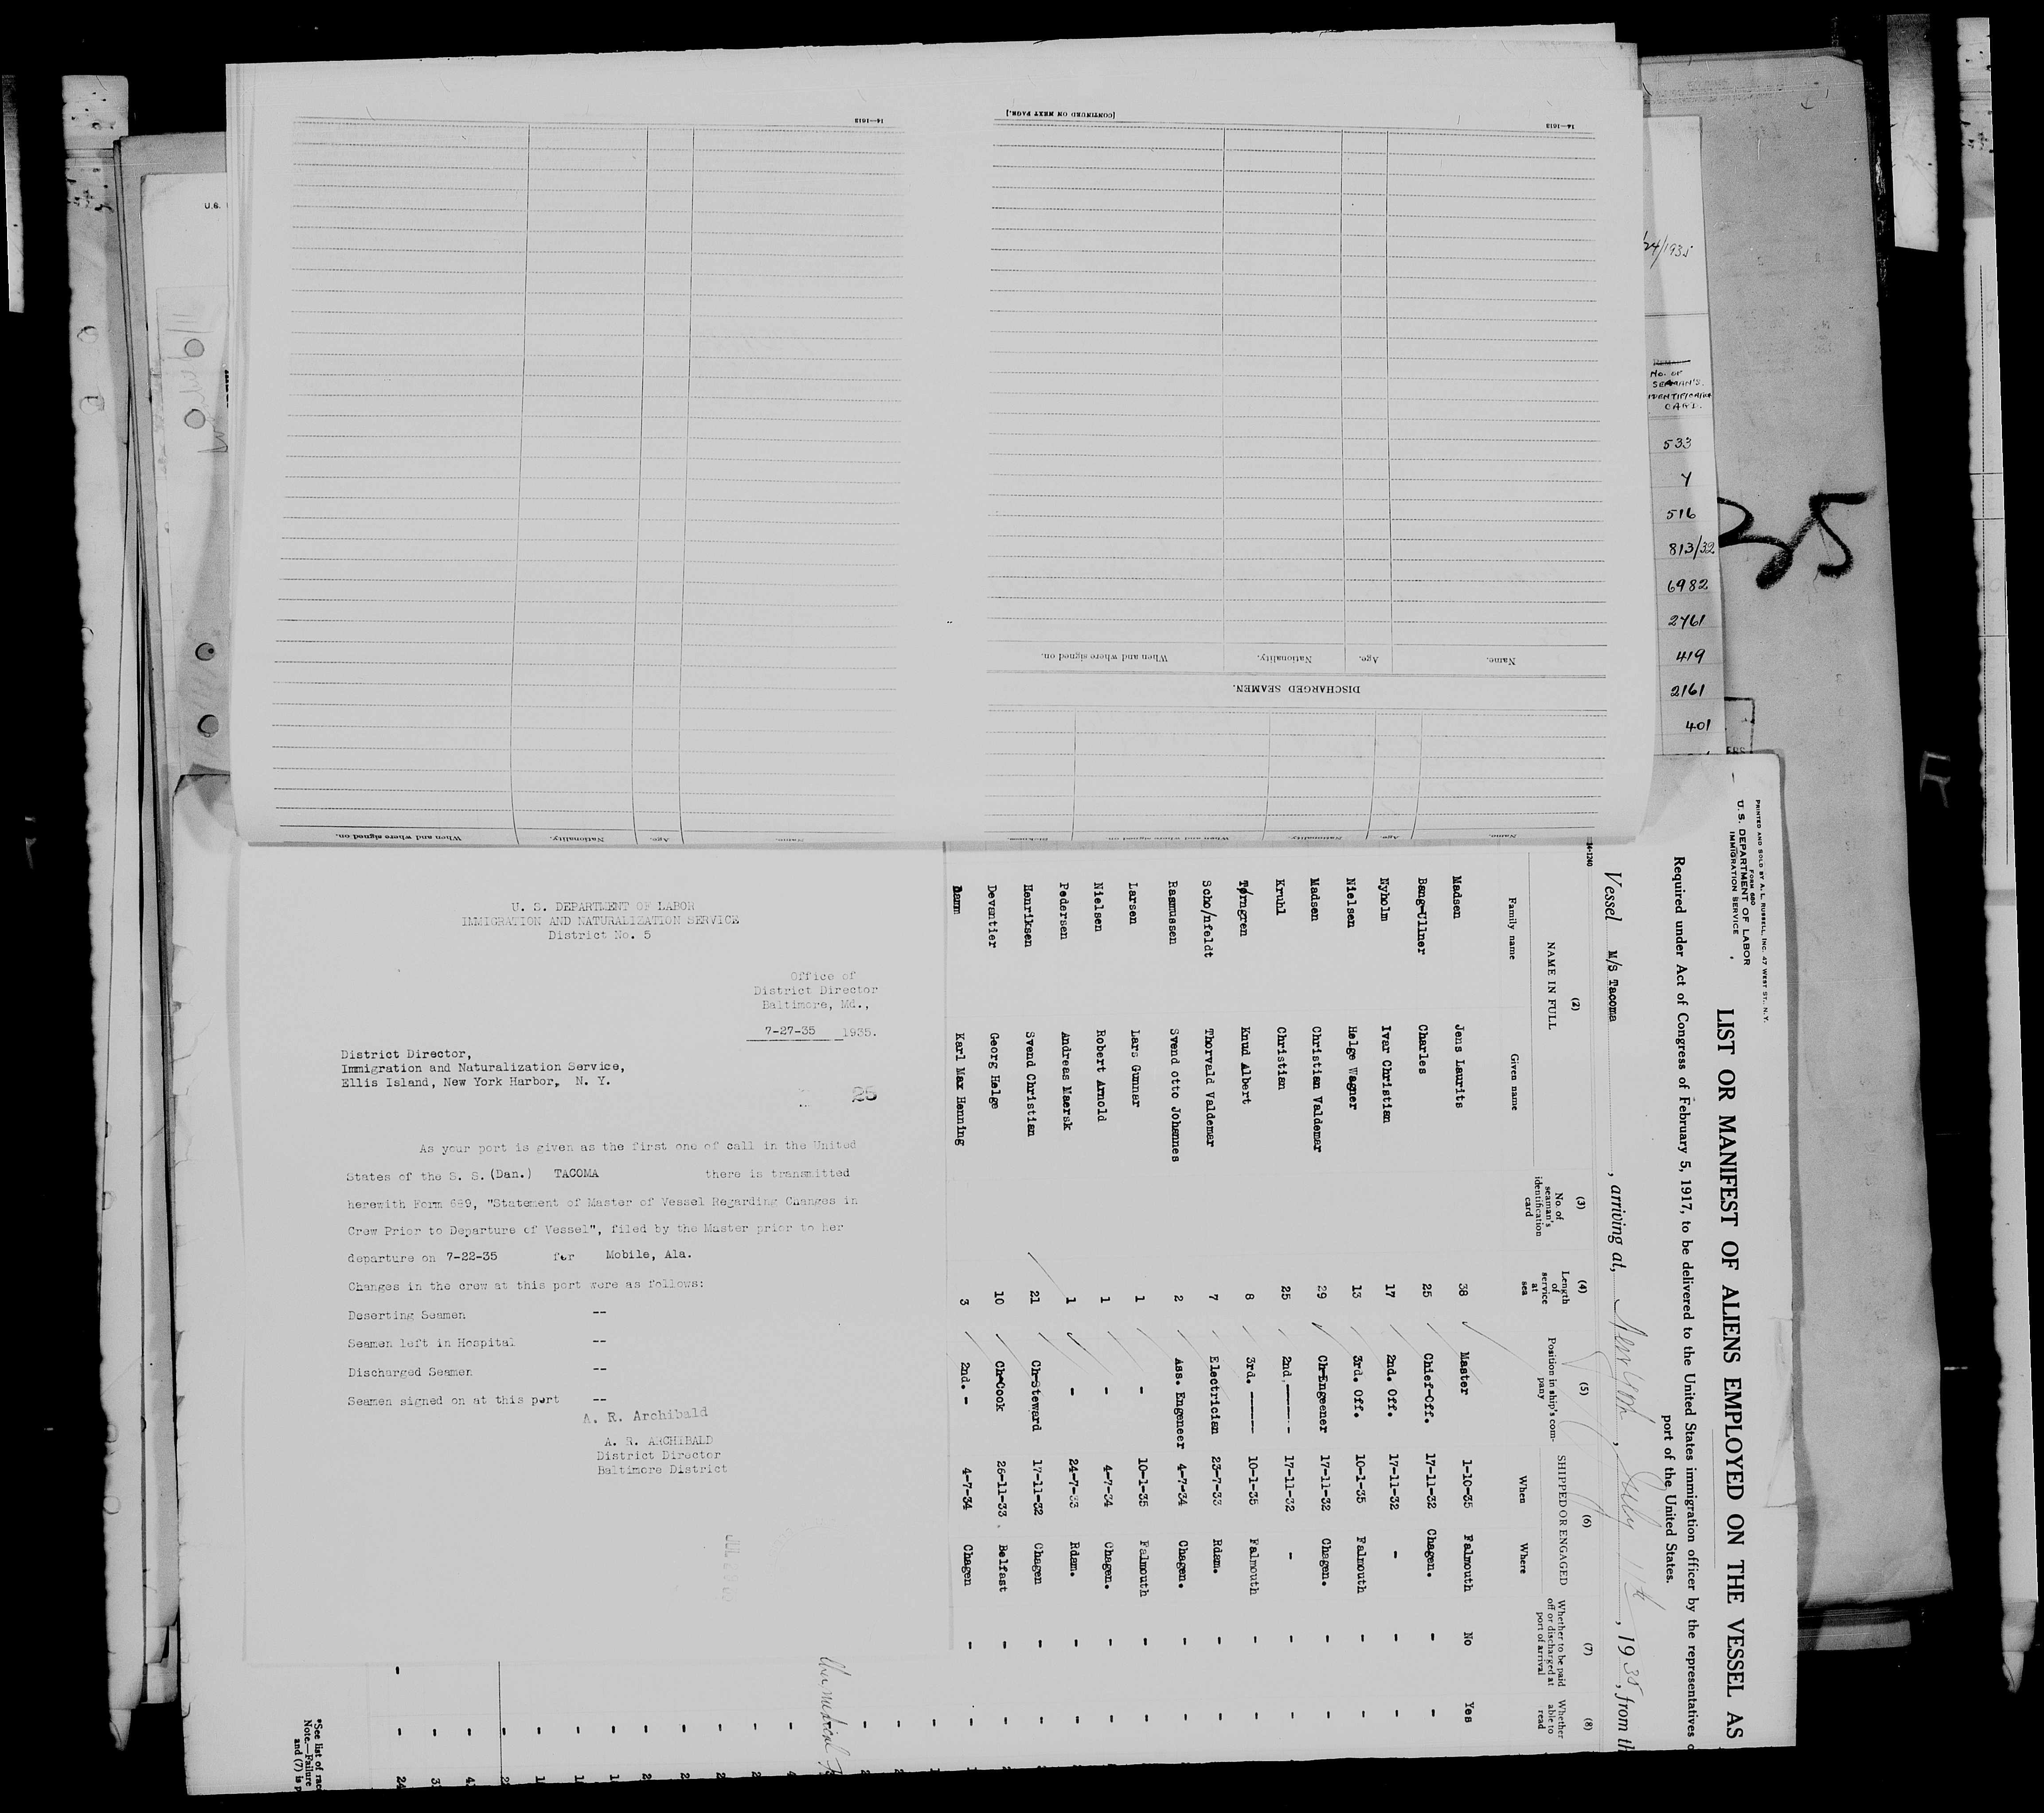 [CONTINUED ON NEXT PAGE.]
14—1613
14—1613
DISCHARGED SEAMEN.
Name. Age. Nationality. When and where signed on.
Name. Age. Nationality. When and where signed on.
Name. Age. Nationality. When and where signed on.
U.S.
/24/1935
No. of
SEAMAN'S
IDENTIFICATION
CARD.
533
Y
516
813/32
6982
2761
419
2161
401
25
U. S. DEPARTMENT OF LABOR
IMMIGRATION AND NATURALIZATION SERVICE
District No. 5
Office of
District Director
Baltimore, Md.,
7-27-35 1935.
District Director,
Immigration and Naturalization Service,
Ellis Island, New York Harbor, N. Y.
25
As your port is given as the first one of call in the United
States of the S. S. (Dan.) TACOMA there is transmitted
herewith Form 689, "Statement of Master of Vessel Regarding Changes in
Crew Prior to Departure of Vessel", filed by the Master prior to her
departure on 7-22-35 for Mobile, Ala.
Changes in the crew at this port were as follows:
Deserting Seamen --
Seamen left in Hospital --
Discharged Seamen --
Seamen signed on at this port --
A. R. Archibald
A. R. ARCHIBALD
District Director
Baltimore District
PRINTED AND SOLD BY A. L. RUSSELL, INC. 47 WEST ST., N. Y.
FORM 680
U. S. DEPARTMENT OF LABOR
IMMIGRATION SERVICE
LIST OR MANIFEST OF ALIENS EMPLOYED ON THE VESSEL AS
Required under Act of Congress of February 5, 1917, to be delivered to the United States immigration officer by the representatives
port of the United States.
Vessel M/S Tacoma, arriving at, New York, July 11th, 1935, from th
14-1240
(2) (3) (4) (5) (6) (7) (8)
NAME IN FULL No. of seaman's identification card Length of service at sea Position in ship's company SHIPPED OR ENGAGED Whether to be paid off or discharged at port of arrival Whether able to read
Family name Given name When Where
Madsen Jens Laurits 38 Master 1-10-35 Falmouth No Yes
Bang-Ullner Charles 25 Chief-Off. 17-11-32 Chagen. - -
Nyholm Ivar Christian 17 2nd. Off. 17-11-32 - - -
Nielsen Helge Wagner 13 3rd. Off. 10-1-35 Falmouth - -
Madsen Christian Valdemar 29 Ch-Engeener 17-11-32 Chagen. - -
Kruhl Christian 25 2nd. ——— 17-11-32 - - -
Tørngren Knud Albert 8 3rd. ——— 10-1-35 Falmouth - -
Scho/nfeldt Thorvald Valdemar 7 Electrician 23-7-33 Rdam. - -
Rasmussen Svend otto Johannes 2 Ass. Engeneer 4-7-34 Chagen. - -
Larsen Lars Gunnar 1 - 10-1-35 Falmouth - -
Nielsen Robert Arnold 1 - 4-7-34 Chagen. - -
Pedersen Andreas Maersk 1 - 24-7-33 Rdam. - -
Henriksen Svend Christian 21 Ch-Steward 17-11-32 Chagen - -
Devantier Georg Helge 10 Ch-Cook 26-11-33 Belfast - -
Damm Karl Max Henning 3 2nd. - 4-7-34 Chagen - -
*See list of race
Note.—Failure
and (7) is p